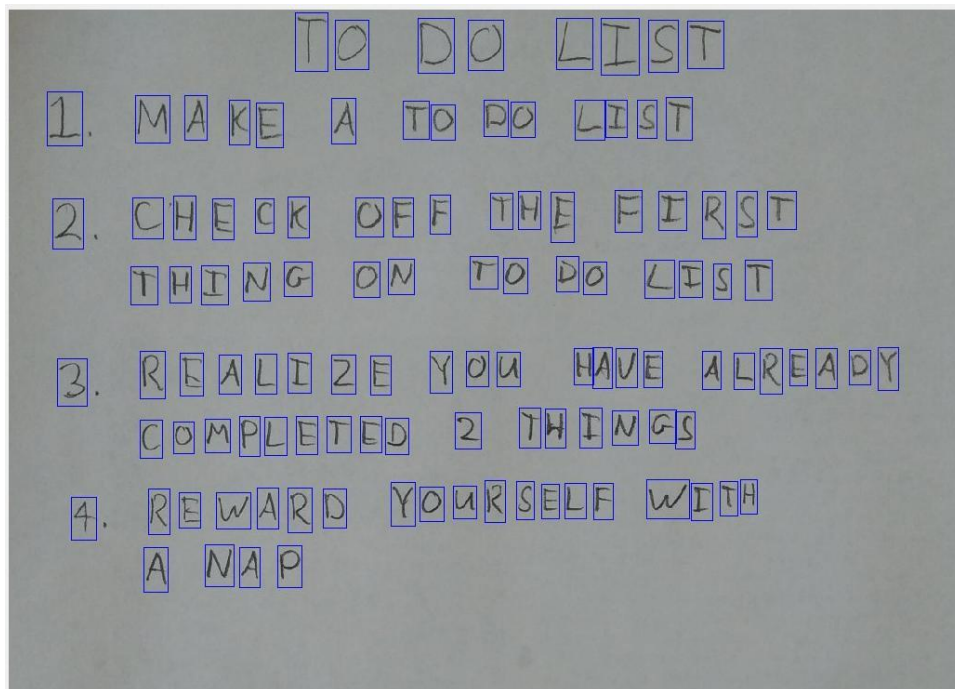 TO DO LIST
1. MAKE A TO DO LIST
2. CHECK OFF THE FIRST
THING ON TO DO LIST
3. REALIZE YOU HAVE ALREADY
COMPLETED 2 THINGS
4. REWARD YOURSELF WITH
A NAP